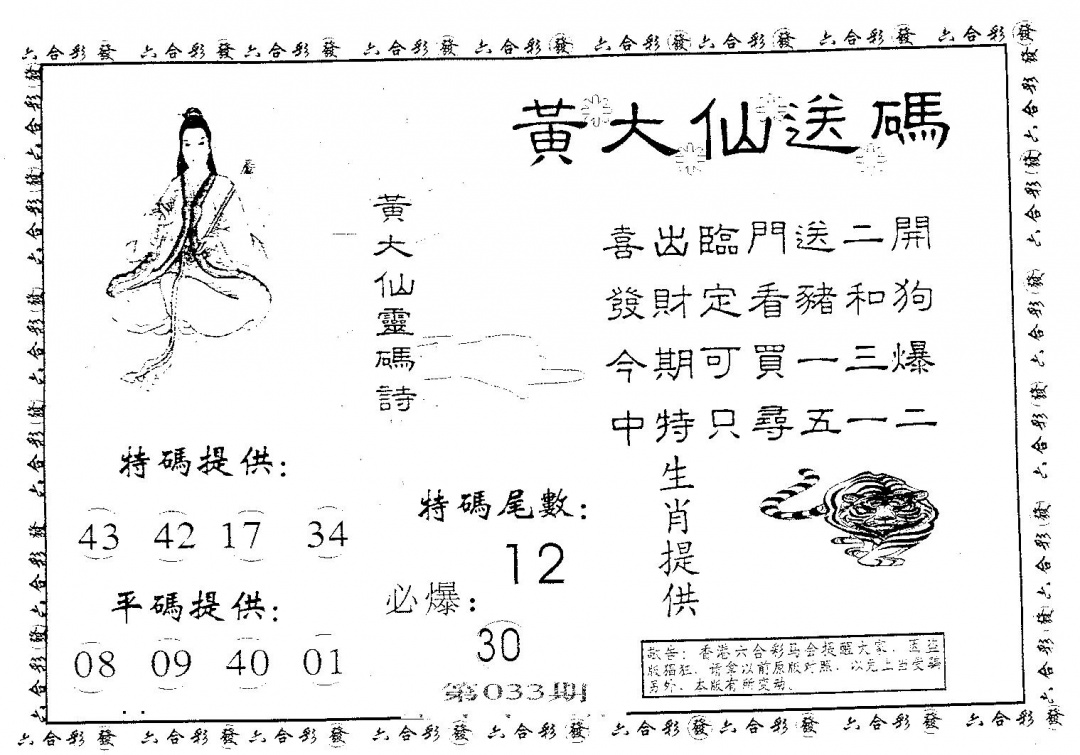 六合彩發 六合彩發六合彩發 六合彩發 六合彩發 六合彩發六合彩發 六合彩發 六合彩發
黃大仙送碼
黃大仙靈碼詩
喜出臨門送二開
發財定看豬和狗
今期可買一三爆
中特只尋五一二
特碼提供：
43 42 17 34
平碼提供：
08 09 40 01
特碼尾數：
12
必爆：
30
第033期
生肖提供
敬告：香港六合彩马会提醒大家，因盗
版猖狂，请拿以前原版对照，以免上当受骗
另外，本版有所变动。
六合彩發 六合彩發六合彩發 六合彩發 六合彩發 六合彩發六合彩發 六合彩發 六合彩發